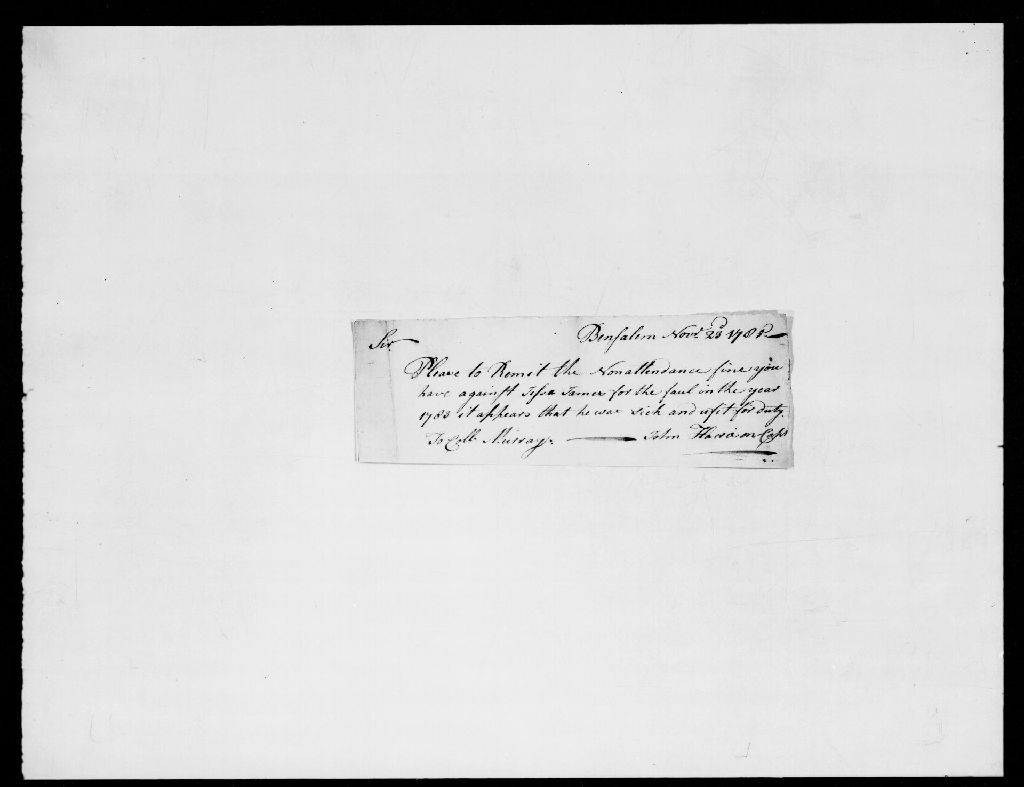 Bensalem Novr. 23d 178
Sir
Please to Remit the Nonattendance fine you
have against James for the faul in the year
1783 it appears that he was Sick and ufit for duty
To Coll. Murray. John Capt